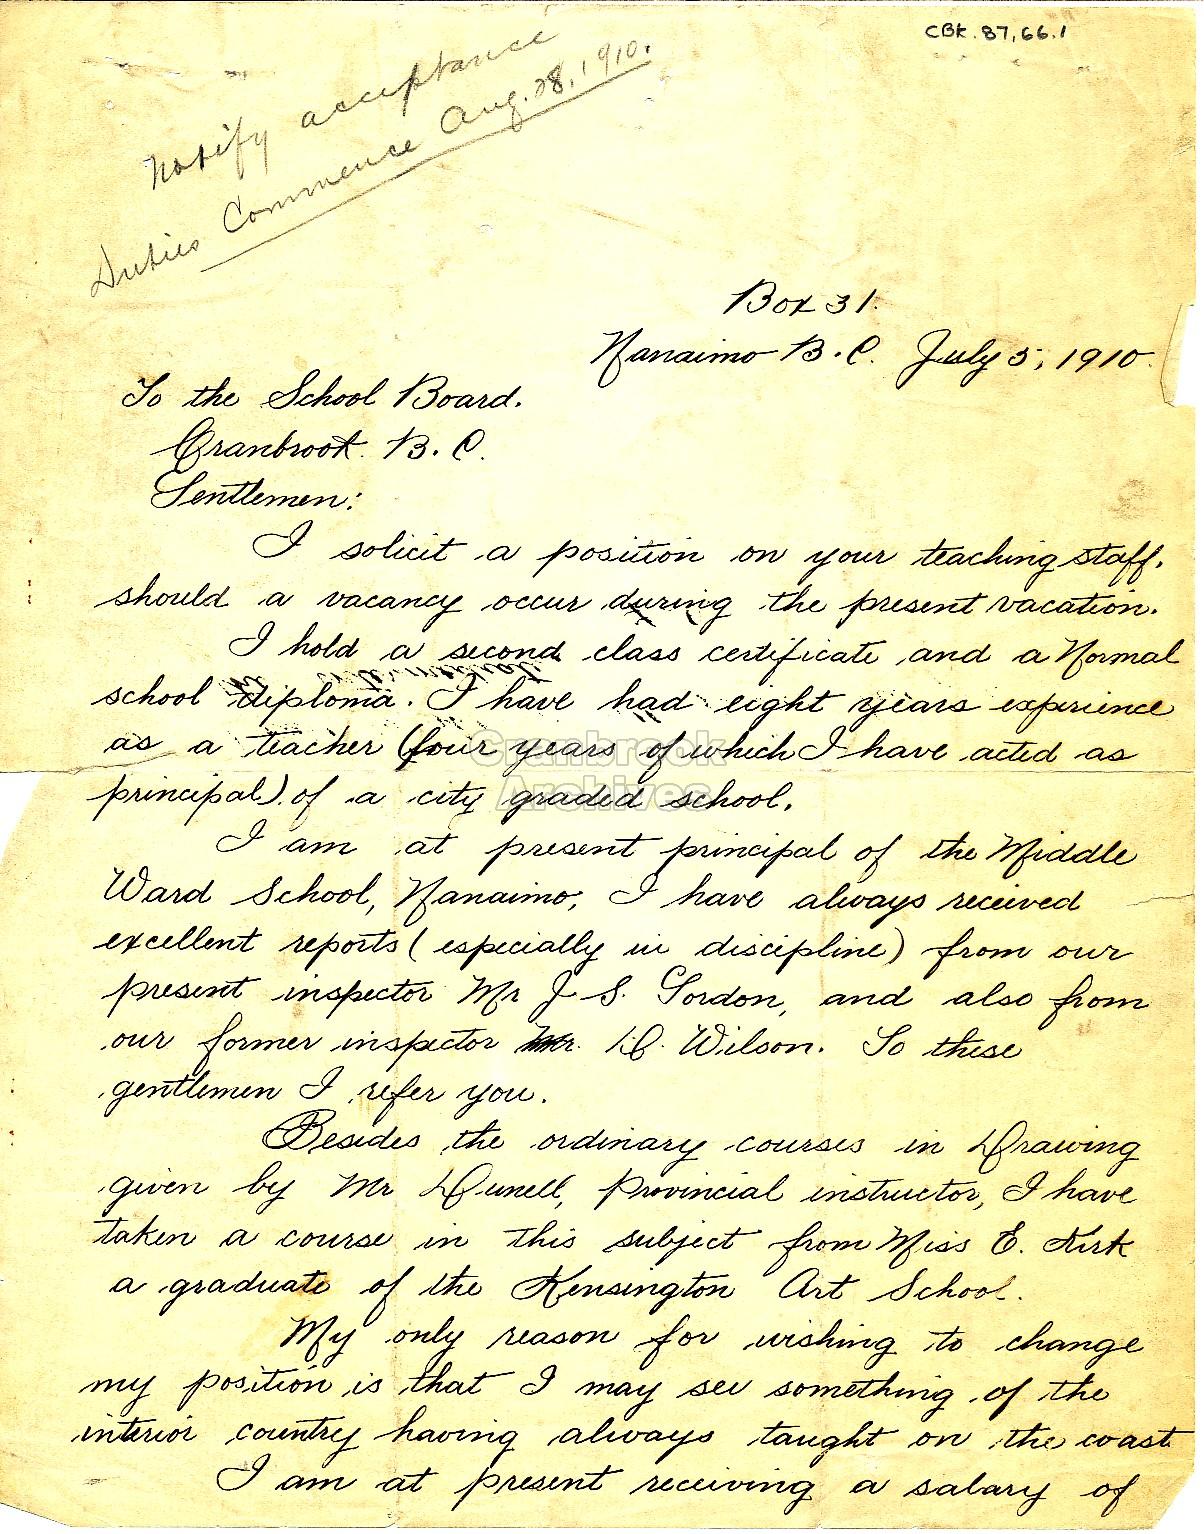 CBK.87,66.1
Notify acceptance
Duties Commence Aug. 28, 1910.
Box 31.
Nanaimo B.C. July 5, 1910.
To the School Board.
Cranbrook. B.C.
Gentlemen:
I solicit a position on your teaching staff.
should a vacancy occur during the present vacation.
I hold a second class certificate and a Normal
school diploma. I have had eight years experience
as a teacher (four years of which I have acted as
principal) of a city graded school.
I am at present principal of the Middle
Ward School, Nanaimo, I have always received
excellent reports (especially in discipline) from our
present inspector Mr J. S. Gordon, and also from
our former inspector Mr. D. Wilson. To these
gentlemen I refer you.
Besides the ordinary courses in Drawing
given by Mr Dunell, Provincial instructor, I have
taken a course in this subject from Miss E. Kirk
a graduate of the Kensington Art School.
My only reason for wishing to change
my position is that I may see something of the
interior country having always taught on the coast
I am at present receiving a salary of
Cranbrook
Archives